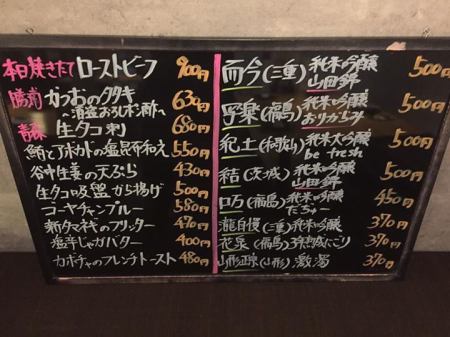 本日焼きたて ローストビーフ 900円
勝浦 かつおのタタキ 630円
〜酒盗おろしポン酢〜
青森 生タコ刺 680円
鯖とアボカドの塩昆布和え 550円
谷中生姜の天ぷら 430円
生タコ吸盤から揚げ 500円
ゴーヤチャンプルー 580円
新タマネギのフリッター 470円
塩辛じゃがバター 400円
カボチャのフレンチトースト 480円
而今(三重) 純米吟醸 500円
山田錦
写楽(福島) 純米吟醸 500円
おりがらみ
紀土(和歌山) 純米大吟醸 500円
be fresh
結(茨城) 純米吟醸 500円
山田錦
ロ万(福島) 純米吟醸 450円
だぢゅー
瀧自慢(三重) 純米吟醸 370円
花泉(福島) にごり 370円
山形正宗(山形) 370円